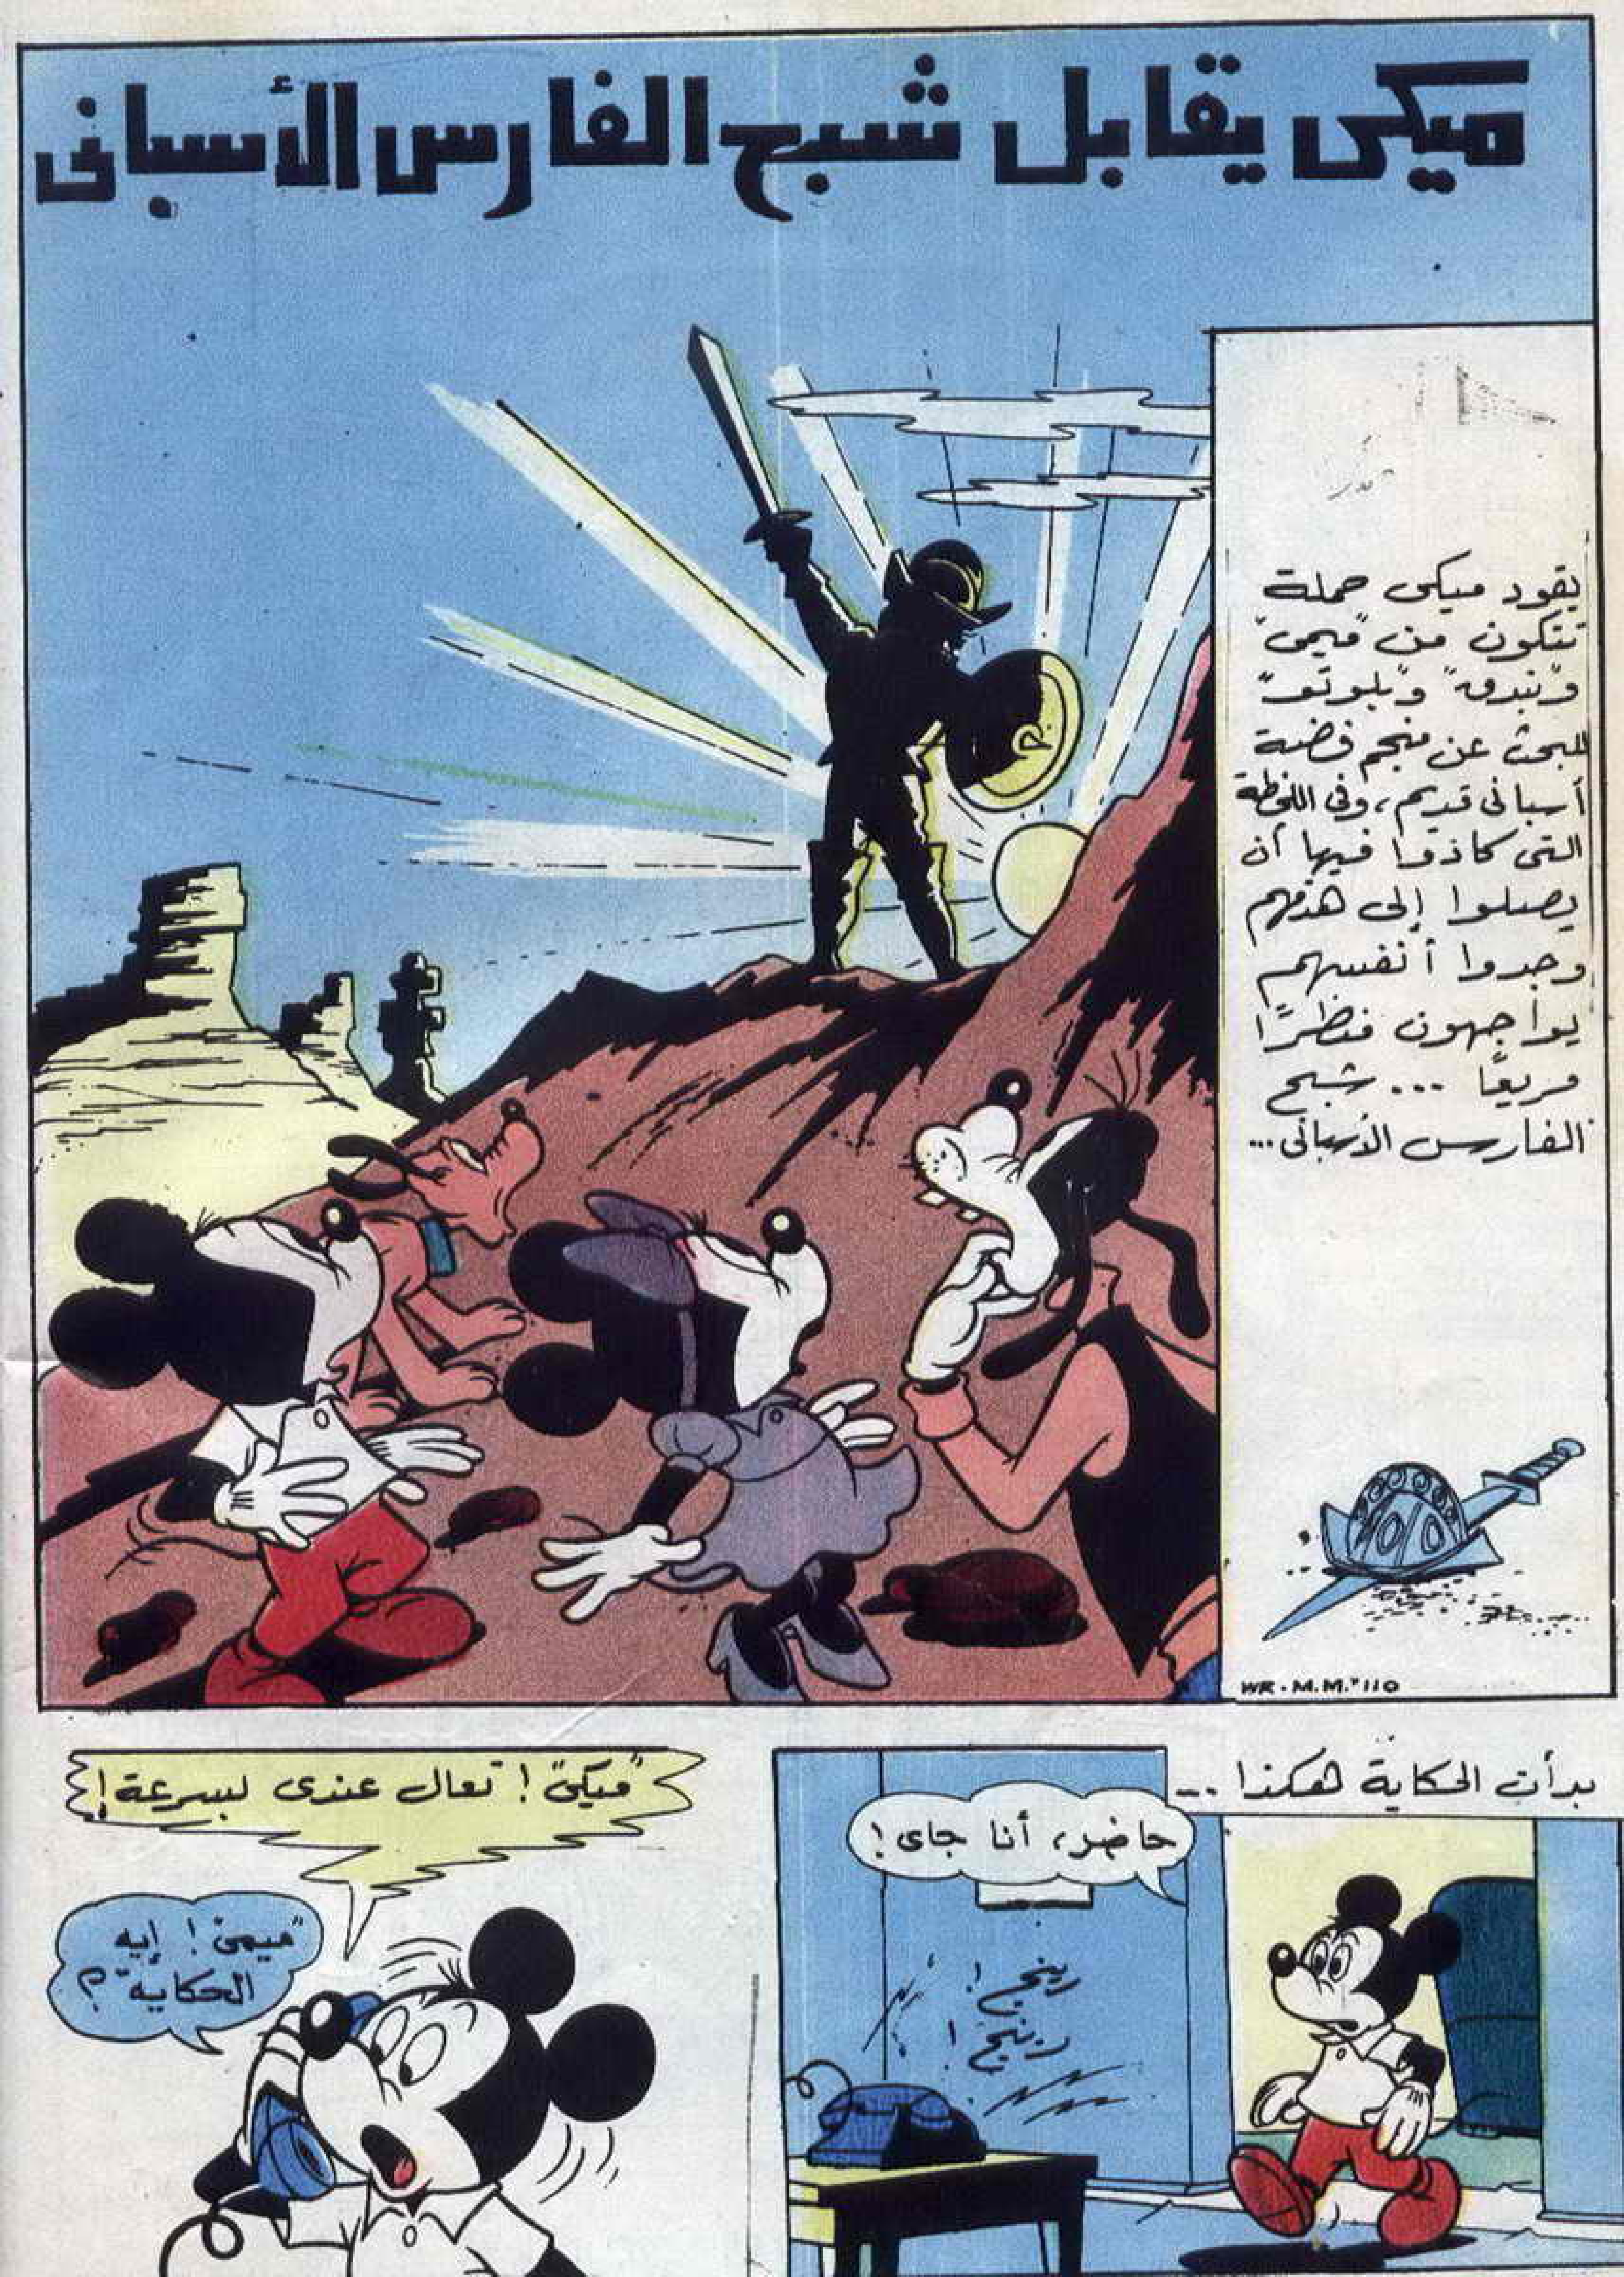 ميكى يقابل شبح الفارس الأسبانى
يقود ميكى حملة
تتكون من "ميمى"
و"بندق" و"بلوتو"
للبحث عن منجم فضة
أسبانى قديم، وفى اللحظة
التى كادوا فيها أن
يصلوا إلى هدفهم
وجدوا أنفسهم
يواجهون منظرًا
مريعًا ... شبح
الفارس الأسبانى...
WR.M.M.#110
بدأت الحكاية هكذا ...
حاضر، أنا جاى!
رينج!
رينج!
"ميكى"! تعال عندى بسرعة!
"ميمى"! إيه
الحكاية؟